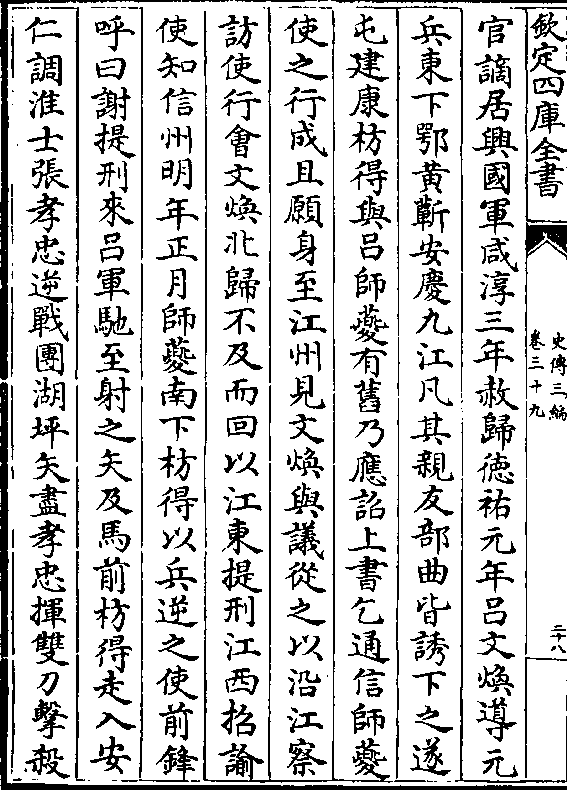 欽定四庫全書
史傳三編
卷三十九
二十八
官謫居興國軍咸淳三年赦歸徳祐元年吕文煥導元
兵東下鄂黄蘄安慶九江凡其親友部曲皆誘下之遂
屯建康枋得與吕師夔有舊乃應詔上書乞通信師夔
使之行成且願身至江州見文煥與議從之以沿江察
訪使行會文煥北歸不及而回以江東提刑江西招諭
使知信州明年正月師夔南下枋得以兵逆之使前鋒
呼曰謝提刑來吕軍馳至射之矢及馬前枋得走入安
仁調淮士張孝忠逆戰團湖坪矢盡孝忠揮雙刀擊殺